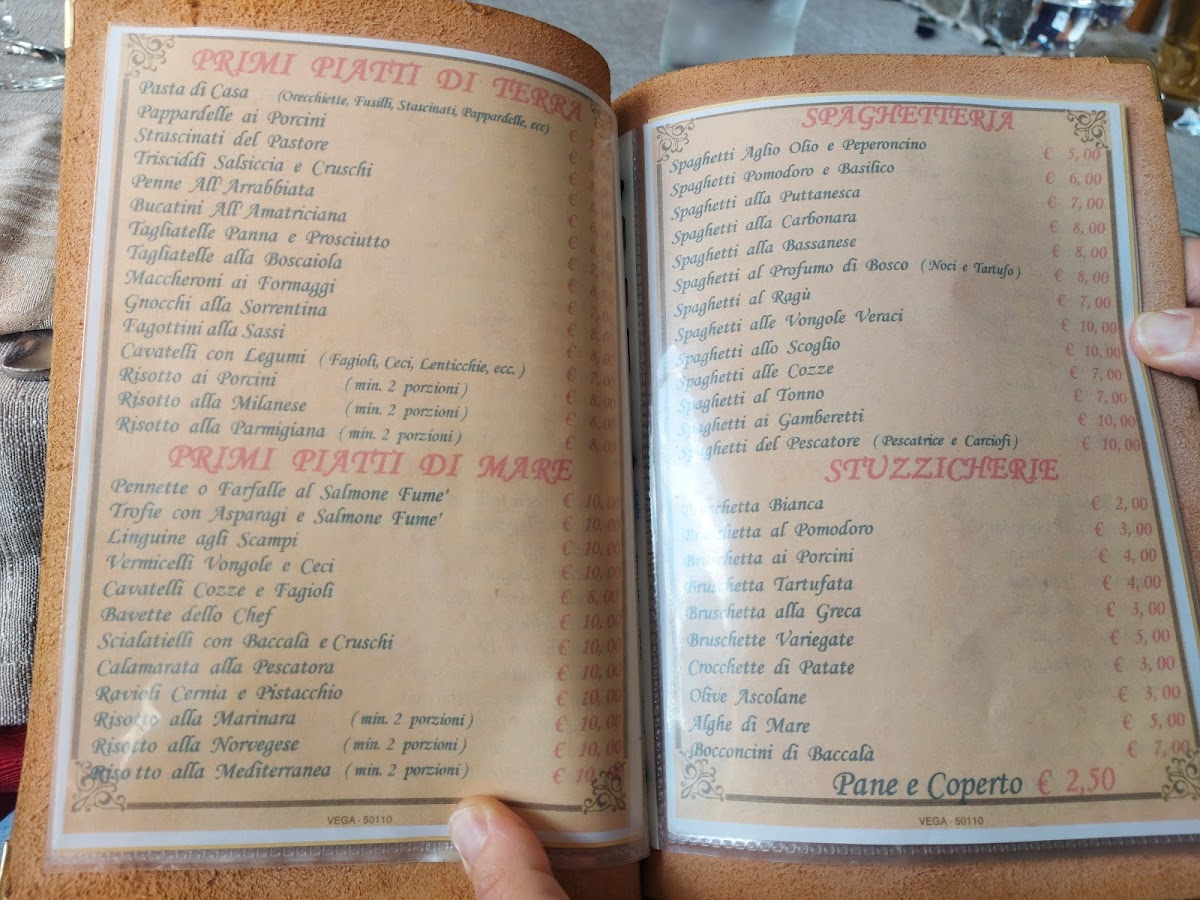 PRIMI PIATTI DI TERRA
Pasta di Casa (Orecchiette, Fusilli, Stascinati, Pappardelle, ecc) €
Pappardelle ai Porcini €
Strascinati del Pastore €
Trisciddi Salsiccia e Cruschi €
Penne All'Arrabbiata €
Bucatini All'Amatriciana €
Tagliatelle Panna e Prosciutto €
Tagliatelle alla Boscaiola €
Maccheroni ai Formaggi €
Gnocchi alla Sorrentina €
Fagottini alla Sassi € 8,00
Cavatelli con Legumi (Fagioli, Ceci, Lenticchie, ecc.) € 7,00
Risotto ai Porcini (min. 2 porzioni) € 8,00
Risotto alla Milanese (min. 2 porzioni) € 8,00
Risotto alla Parmigiana (min. 2 porzioni) € 8,00
PRIMI PIATTI DI MARE
Pennette o Farfalle al Salmone Fume' € 10,00
Trofie con Asparagi e Salmone Fume' € 10,00
Linguine agli Scampi € 10,00
Vermicelli Vongole e Ceci € 10,00
Cavatelli Cozze e Fagioli € 8,00
Bavette dello Chef € 10,00
Scialatielli con Baccalà e Cruschi € 10,00
Calamarata alla Pescatora € 10,00
Ravioli Cernia e Pistacchio € 10,00
Risotto alla Marinara (min. 2 porzioni) € 10,00
Risotto alla Norvegese (min. 2 porzioni) € 10,00
Risotto alla Mediterranea (min. 2 porzioni) € 10,
VEGA - 50110
SPAGHETTERIA
Spaghetti Aglio Olio e Peperoncino € 5,00
Spaghetti Pomodoro e Basilico € 6,00
Spaghetti alla Puttanesca € 7,00
Spaghetti alla Carbonara € 8,00
Spaghetti alla Bassanese € 8,00
Spaghetti al Profumo di Bosco (Noci e Tartufo) € 8,00
Spaghetti al Ragù € 7,00
Spaghetti alle Vongole Veraci € 10,00
Spaghetti allo Scoglio € 10,00
Spaghetti alle Cozze € 7,00
Spaghetti al Tonno € 7,00
Spaghetti ai Gamberetti € 10,00
Spaghetti del Pescatore (Pescatrice e Carciofi) € 10,00
STUZZICHERIE
Bruschetta Bianca € 2,00
Bruschetta al Pomodoro € 3,00
Bruschetta ai Porcini € 4,00
Bruschetta Tartufata € 4,00
Bruschetta alla Greca € 3,00
Bruschette Variegate € 5,00
Crocchette di Patate € 3,00
Olive Ascolane € 3,00
Alghe di Mare € 5,00
Bocconcini di Baccalà € 7,00
Pane e Coperto € 2,50
VEGA - 50110